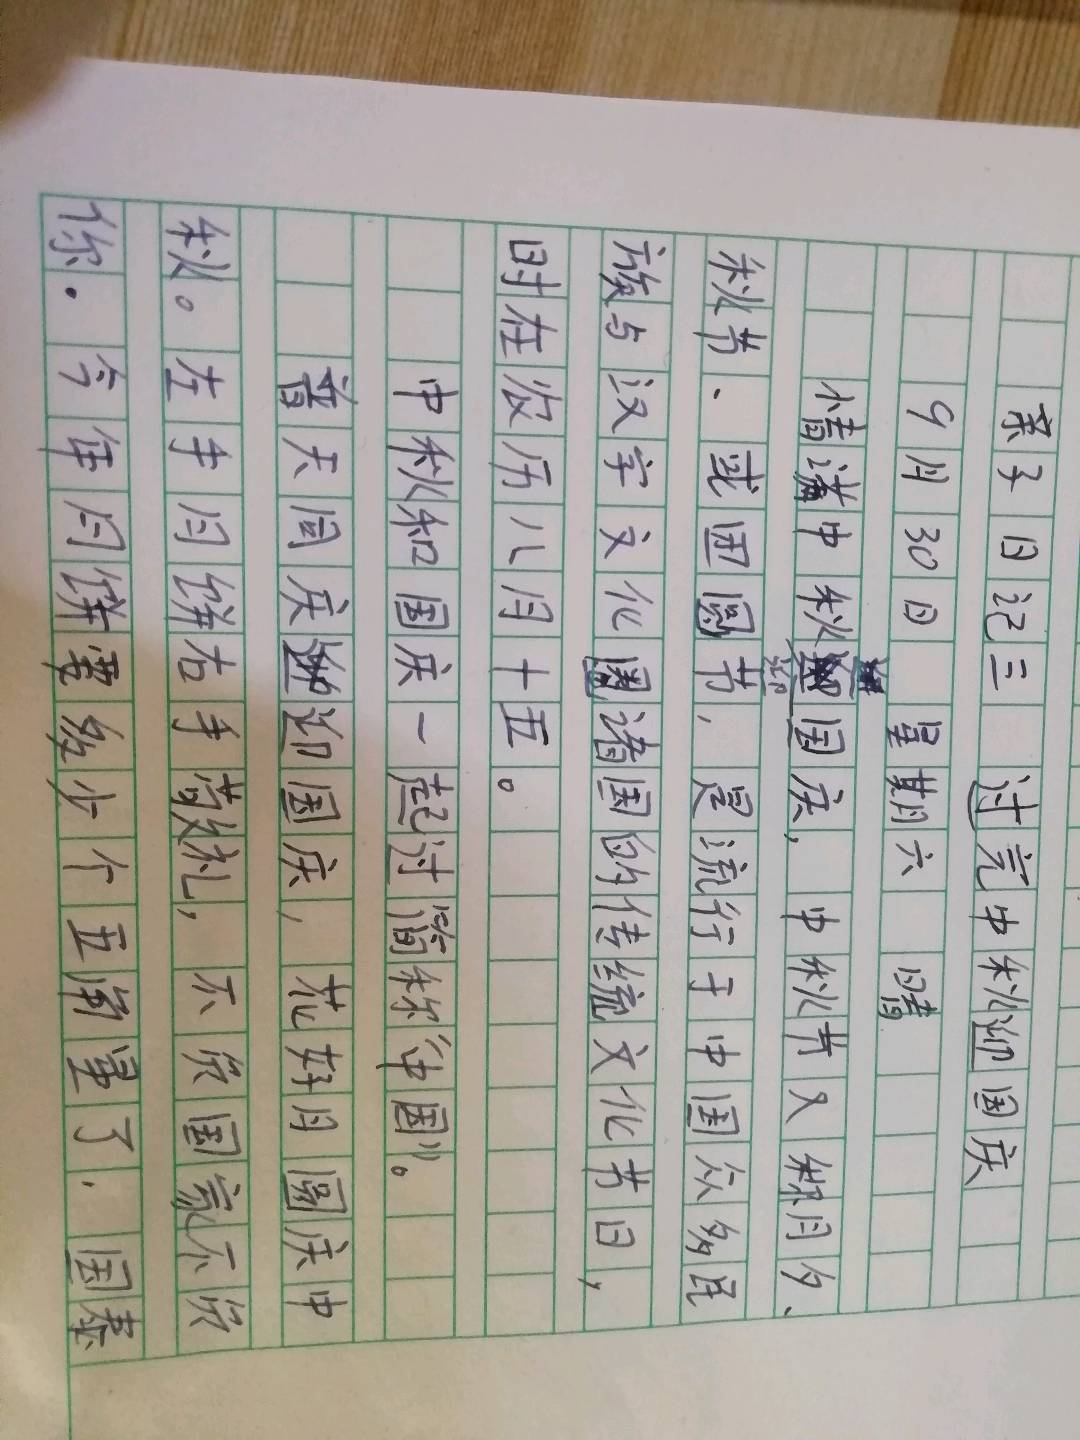 亲子日记三 过完中秋迎国庆
9月30日 星期六 晴
情满中秋迎国庆，中秋节又称月夕、
秋节、或团圆节，是流行于中国众多民
族与汉字文化圈诸国的传统文化节日，
时在农历八月十五。
中秋和国庆一起过简称“中国”。
普天同庆迎国庆，花好月圆庆中
秋。左手月饼右手薅礼，不负国家不负
你。今年月饼要多少个五角星了，国泰